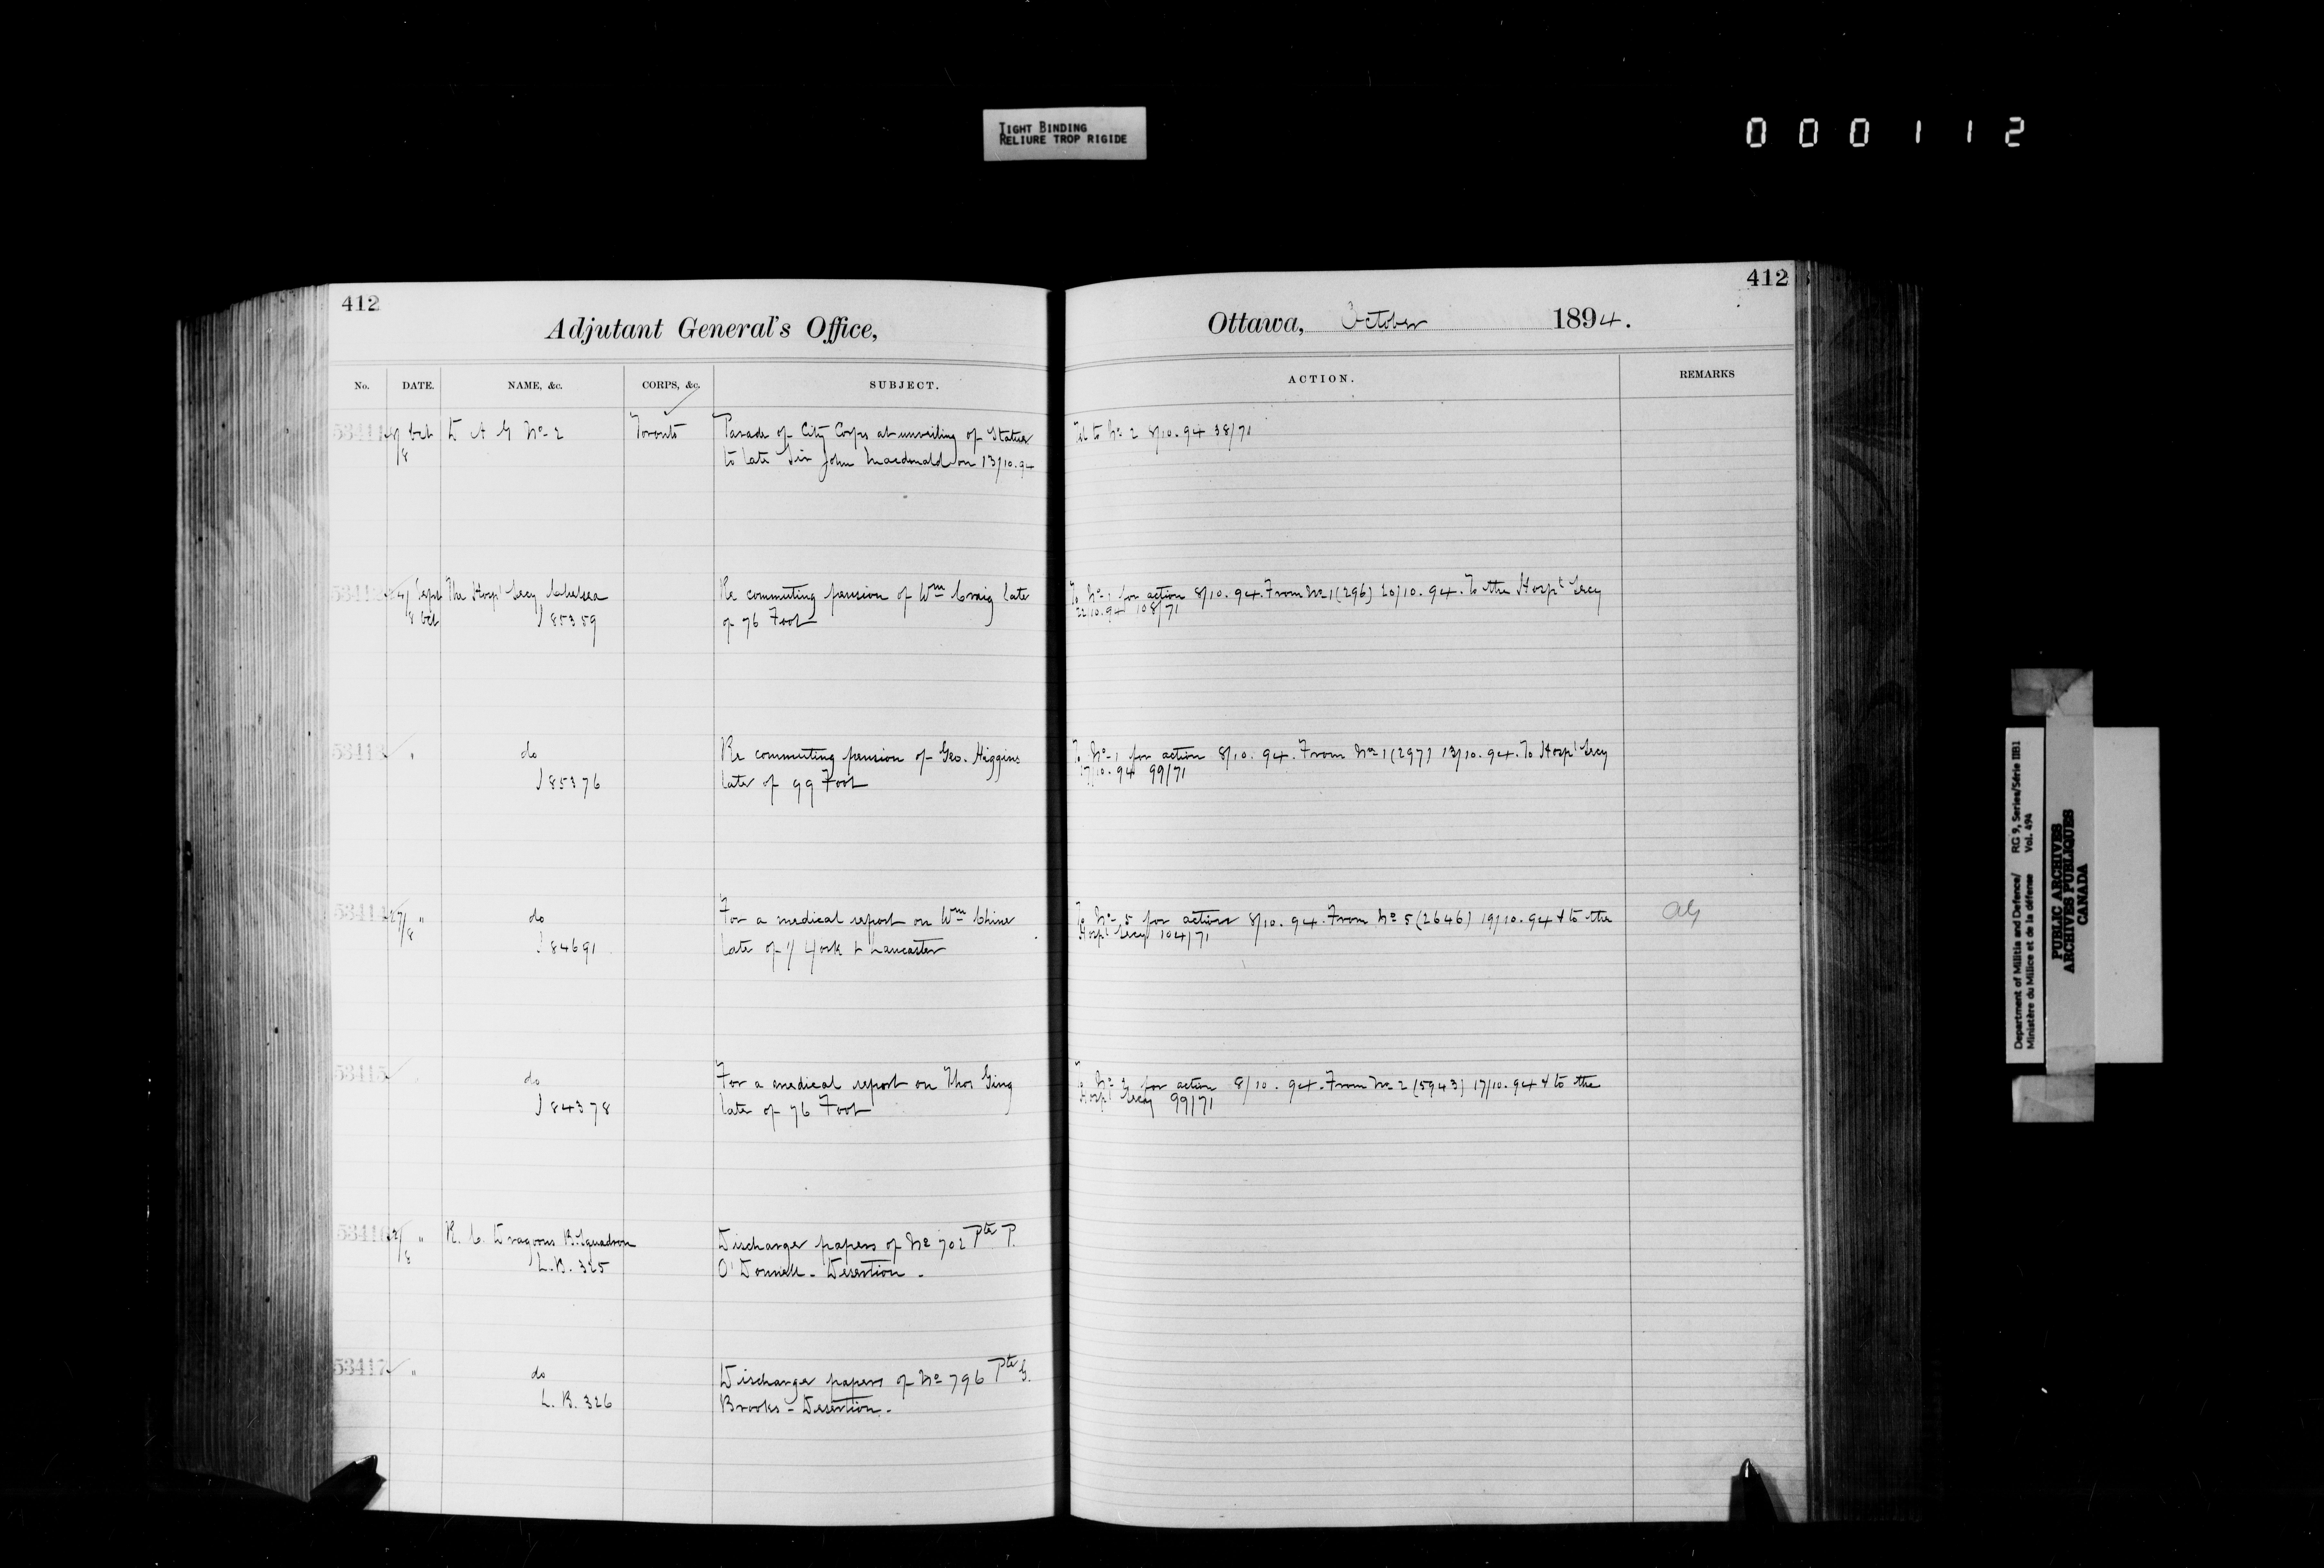 TIGHT BINDING
RELIURE TROP RIGIDE
000112
412
Adjutant General's Office,
No. DATE. NAME, &c. CORPS, &c. SUBJECT.
53411 Oct D A G No. 2 Toronto Parade of City Corps at unveiling of Statue
8 to late Sir John Macdonald on 13/10.94
53412 Sept The Hospl Secy Chelsea Re commuting pension of Wm Craig late
8 Oct J 85359 of 76 Foot
53413 do Re commuting pension of Geo. Higgins
J 85376 late of 99 Foot
53414 27/ " do For a medical report on Wm Chine
8 J 84691 late of 1/ York & Lancaster
53415 do For a medical report on Thos Ging
J 84378 late of 76 Foot
53416 " R. C. Dragoons B. Squadron Discharge papers of No 702 Pte P.
8 L.B. 325 O'Donnell - Desertion.
53417 " do Discharge papers of No 796 Pte G.
L.B. 326 Brooks - Desertion.
412
Ottawa, October 1894.
ACTION. REMARKS
Tel to No 2 8/10.94 38/71
To No. 1 for action 8/10.94. From No 1 (296) 20/10.94. To the Hospl Secy
22.10.94 108/71
To No. 1 for action 8/10.94. From No 1 (297) 13/10.94. To Hospl Secy
17/10.94 99/71
To No. 5 for action 8/10.94. From No 5 (2646) 19/10.94 & to the
Hospl Secy 104/71
AG
To No 2 for action 8/10.94. From No 2 (5943) 17/10.94 & to the
Hospl Secy 99/71
Department of Militia and Defence/ RG 9, Series/Série IIB1
Ministère du Milice et de la défense Vol. 494
PUBLIC ARCHIVES
ARCHIVES PUBLIQUES
CANADA